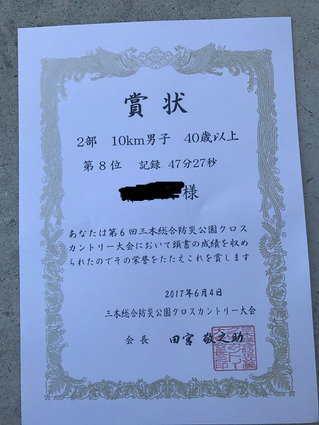 賞状
2部 10km男子 40歳以上
第8位 記録 47分27秒
様
あなたは第6回三本総合防災公園クロス
カントリー大会において頭書の成績を収め
られたのでその栄誉をたたえこれを賞します
2017年6月4日
三本総合防災公園クロスカントリー大会
会長 田宮 敬之助